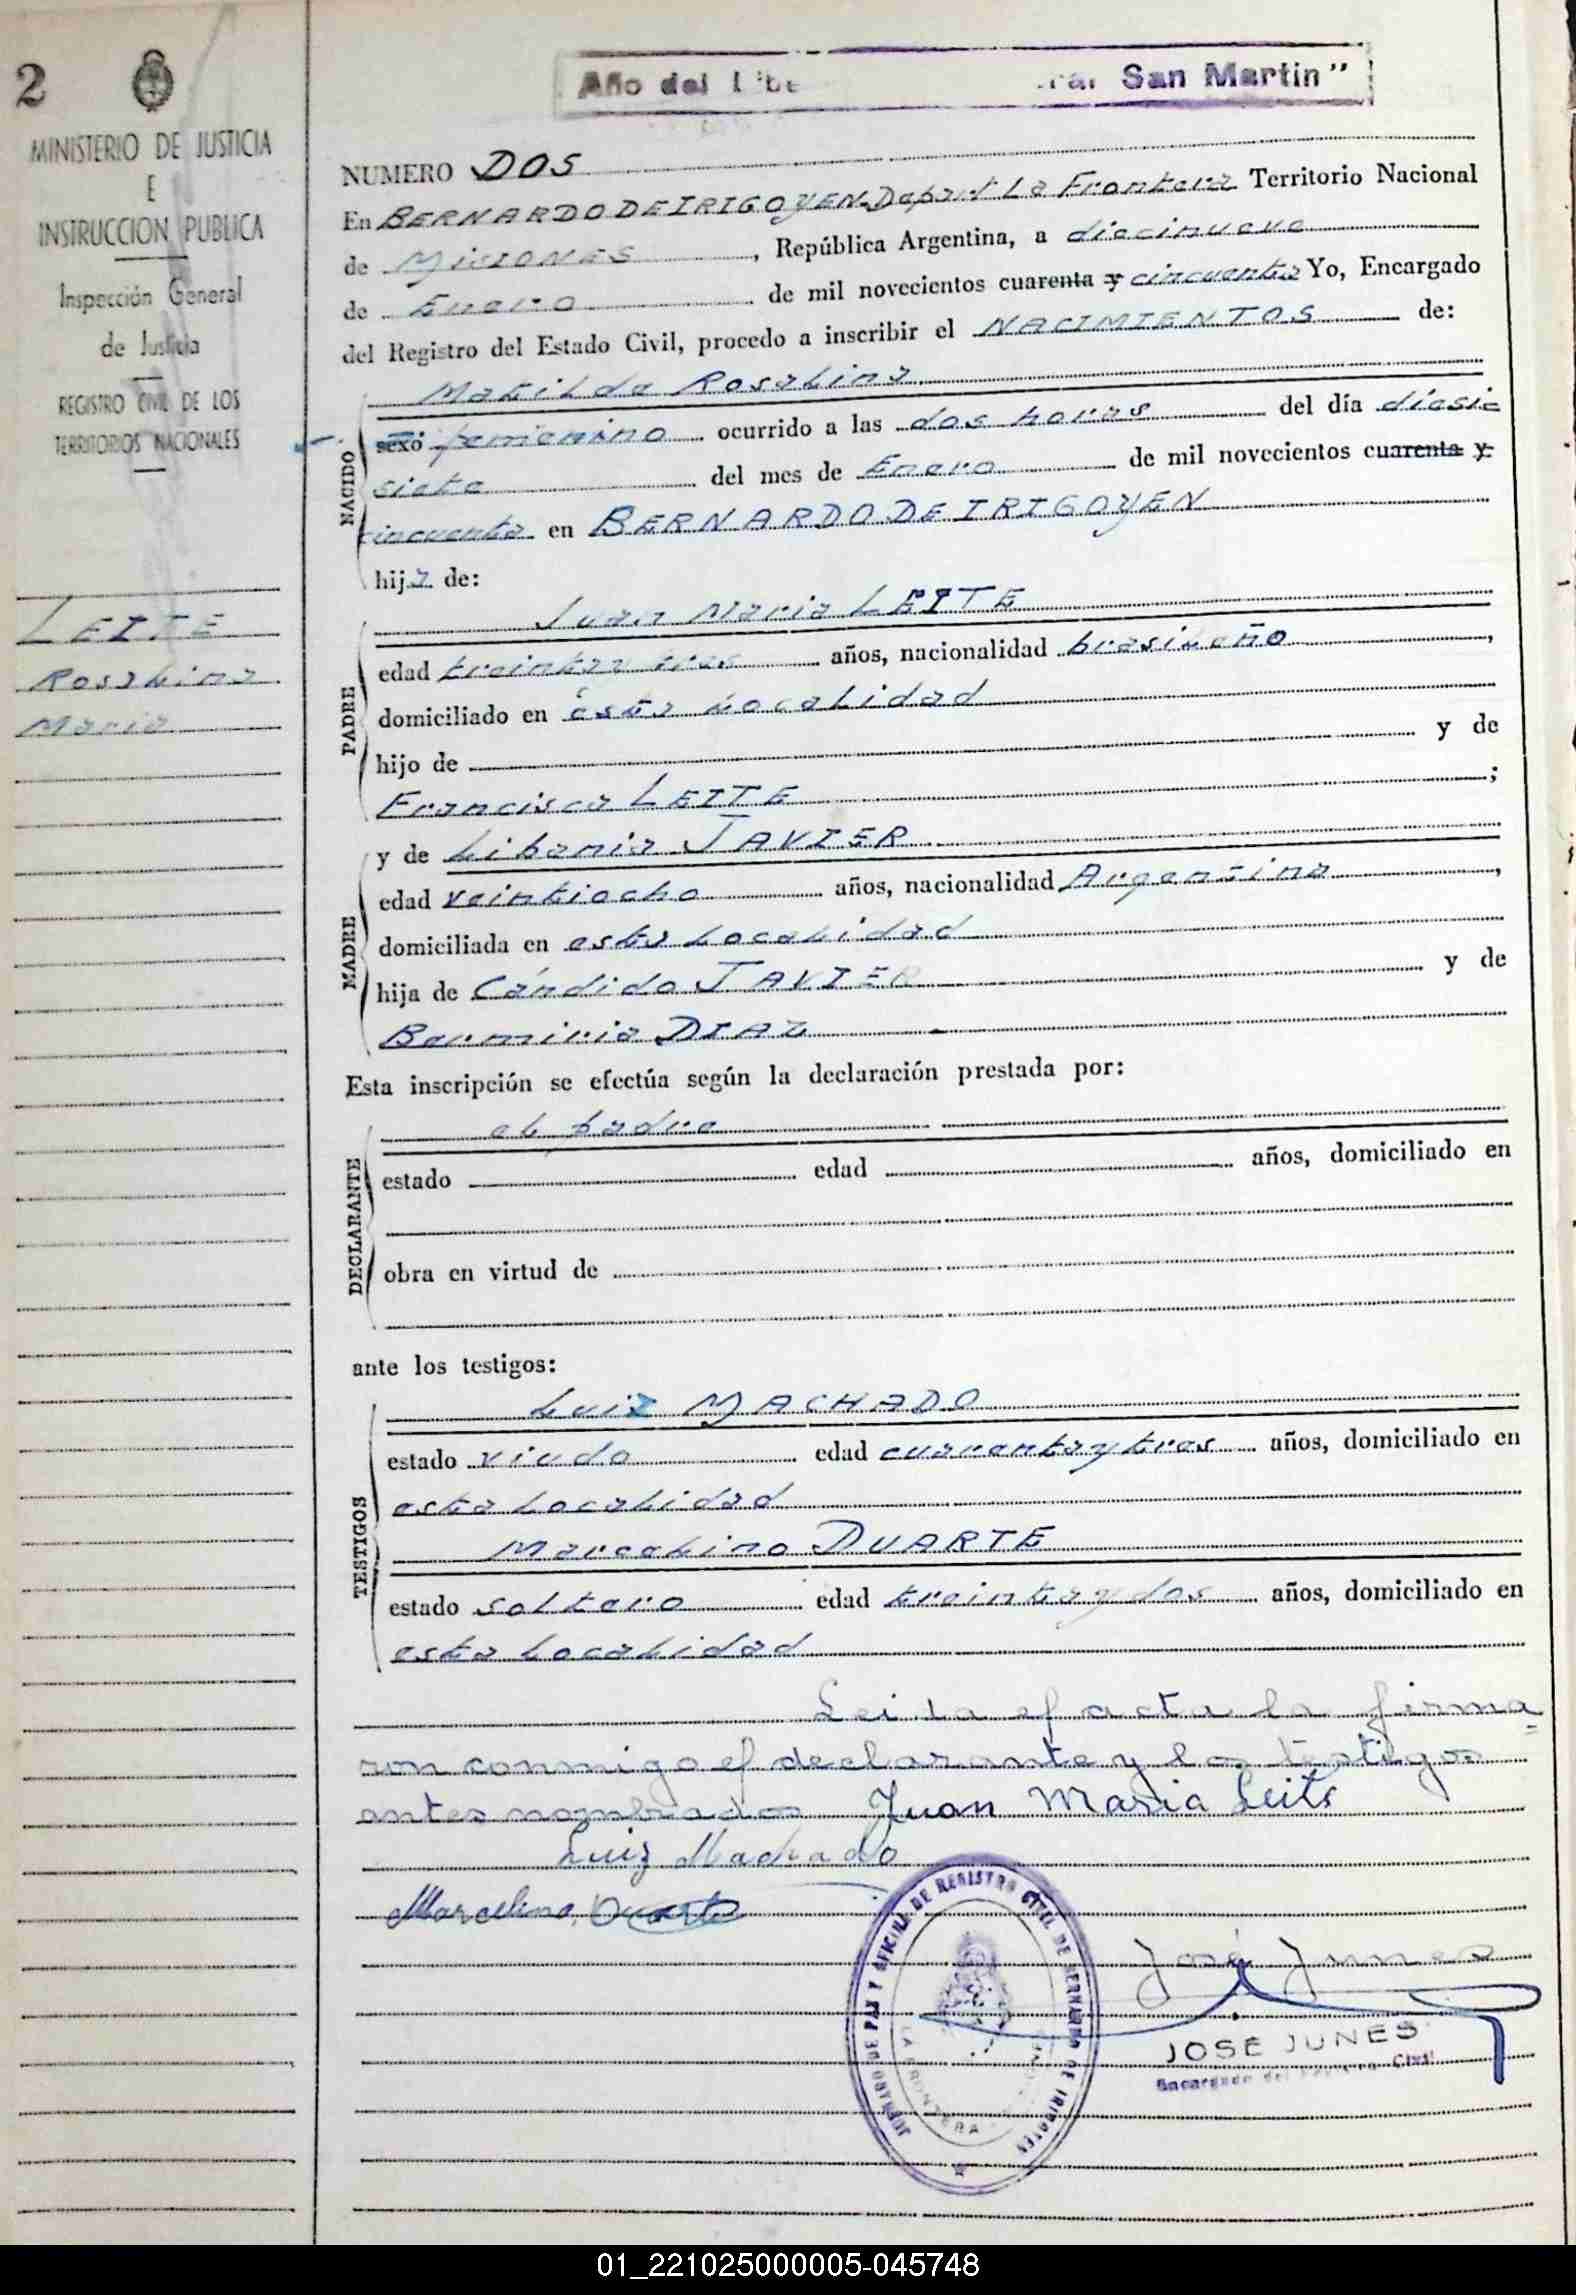 2
MINISTERIO DE JUSTICIA
E
INSTRUCCION PUBLICA
Inspección General
de Justicia
REGISTRO CIVIL DE LOS
TERRITORIOS NACIONALES
LEITE
Rosalina
Maria
Año del Libe ral San Martin"
NUMERO DOS
En BERNARDO DE IRIGOYEN Depart La Frontera Territorio Nacional
de MISIONES, República Argentina, a diecinueve
de Enero de mil novecientos cuarenta y cincuenta Yo, Encargado
del Registro del Estado Civil, procedo a inscribir el NACIMIENTOS de:
Matilde Rosalina
NACIDO
sexo femenino ocurrido a las dos horas del día diesi
siete del mes de Enero de mil novecientos cuarenta y
cincuenta en BERNARDO DE IRIGOYEN
hija de:
Juan Maria LEITE
PADRE
edad treinta y tres años, nacionalidad brasileño,
domiciliado en ésta Localidad
hijo de y de
Francisca LEITE;
y de Libania JAVIER
MADRE
edad veintiocho años, nacionalidad Argentina,
domiciliada en esta Localidad
hija de Cándido JAVIER y de
DIAZ
Esta inscripción se efectúa según la declaración prestada por:
el padre
DECLARANTE
estado edad años, domiciliado en
obra en virtud de
ante los testigos:
Luiz MACHADO
TESTIGOS
estado viudo edad cuarenta y tres años, domiciliado en
esta Localidad
Marcelino DUARTE
estado soltero edad treinta y dos años, domiciliado en
esta Localidad
Leida el acta la firma=
ron conmigo el declarante y los testigos
antes nombrados Juan Maria Leite
Luiz Machado
Marcelino Duarte
JUZGADO DE PAZ Y OFICINA DE REGISTRO CIVIL DE BERNARDO DE IRIGOYEN
LA FRONTERA
José Junes
JOSE JUNES
Encargado del Registro Civil
01_221025000005-045748